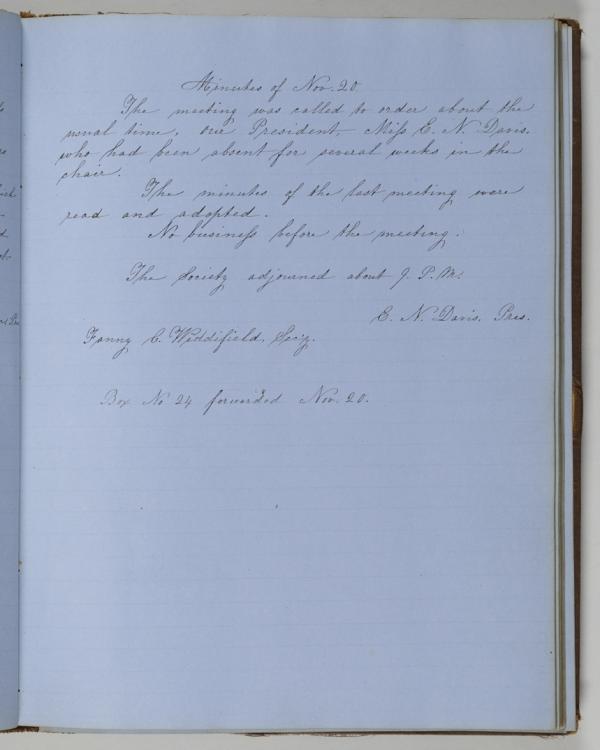 Minutes of Nov. 20.
The meeting was called to order about the
usual time, our President, Miss E. N. Davis,
who had been absent for several weeks in the
chair.
The minutes of the last meeting were
read and adopted.
No business before the meeting.
The Society adjourned about 9 P. M.
E. N. Davis, Pres.
Fanny C. Widdifield, Sec'y.
Box No 24 forwarded Nov. 20.